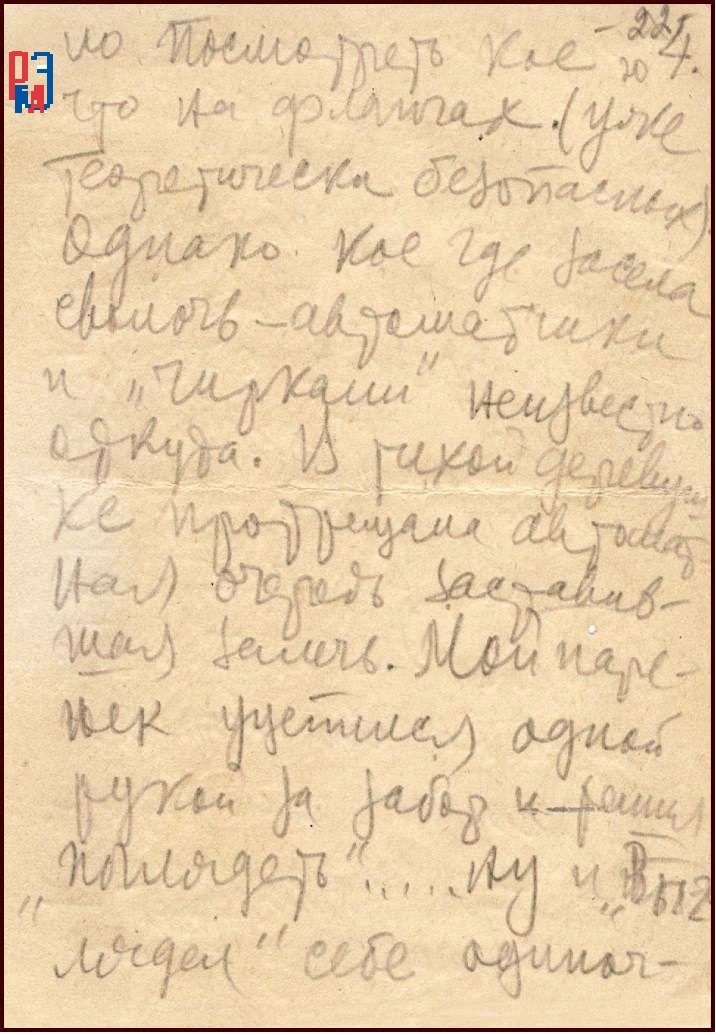 но посмотреть кое -22/4.
что на флангах. (уже
теоретически безопасных).
Однако кое где засела
сволочь-автоматчики
и „чиркали" неизвестно
откуда. В тихой деревуш-
ке протрещала автомат-
ная очередь заставив-
шая залечь. Мой паре-
нек уцепился одной
рукой за забор и решил
„поглядеть"..... Ну и „выг
лядел" себе одиноч-